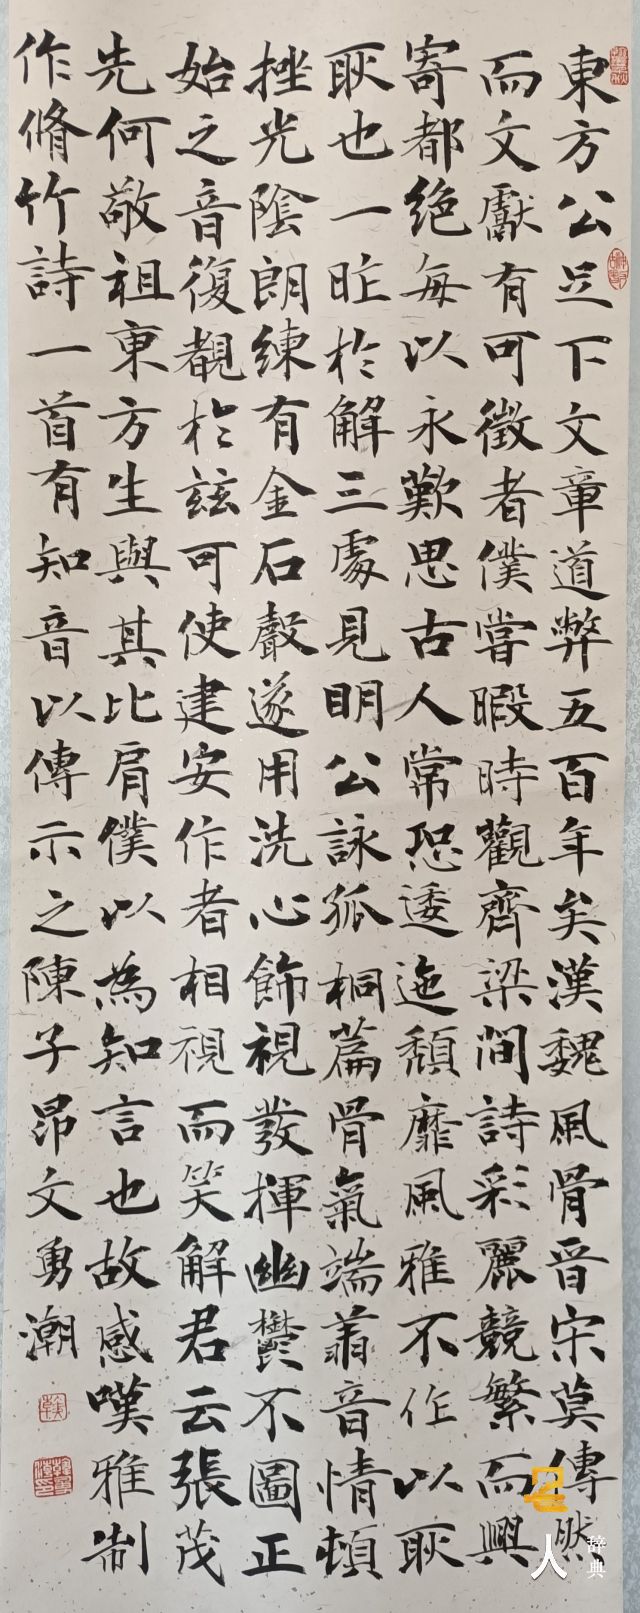 東方公足下文章道弊五百年矣漢魏風骨晋宋莫傳然
而文獻有可徵者僕嘗暇時觀齊梁間詩彩麗競繁而興
寄都絕每以永歎思古人常恐逶迤頹靡風雅不作以耿
耿也一昨於解三處見明公詠孤桐篇骨氣端翔音情頓
挫光陰朗練有金石聲遂用洗心飾視發揮幽鬱不圖正
始之音復覩於兹可使建安作者相視而笑解君云張茂
先何敬祖東方生與其比肩僕以為知言也故感嘆雅制
作脩竹詩一首有知音以傳示之陳子昂文勇潮
人
辞典